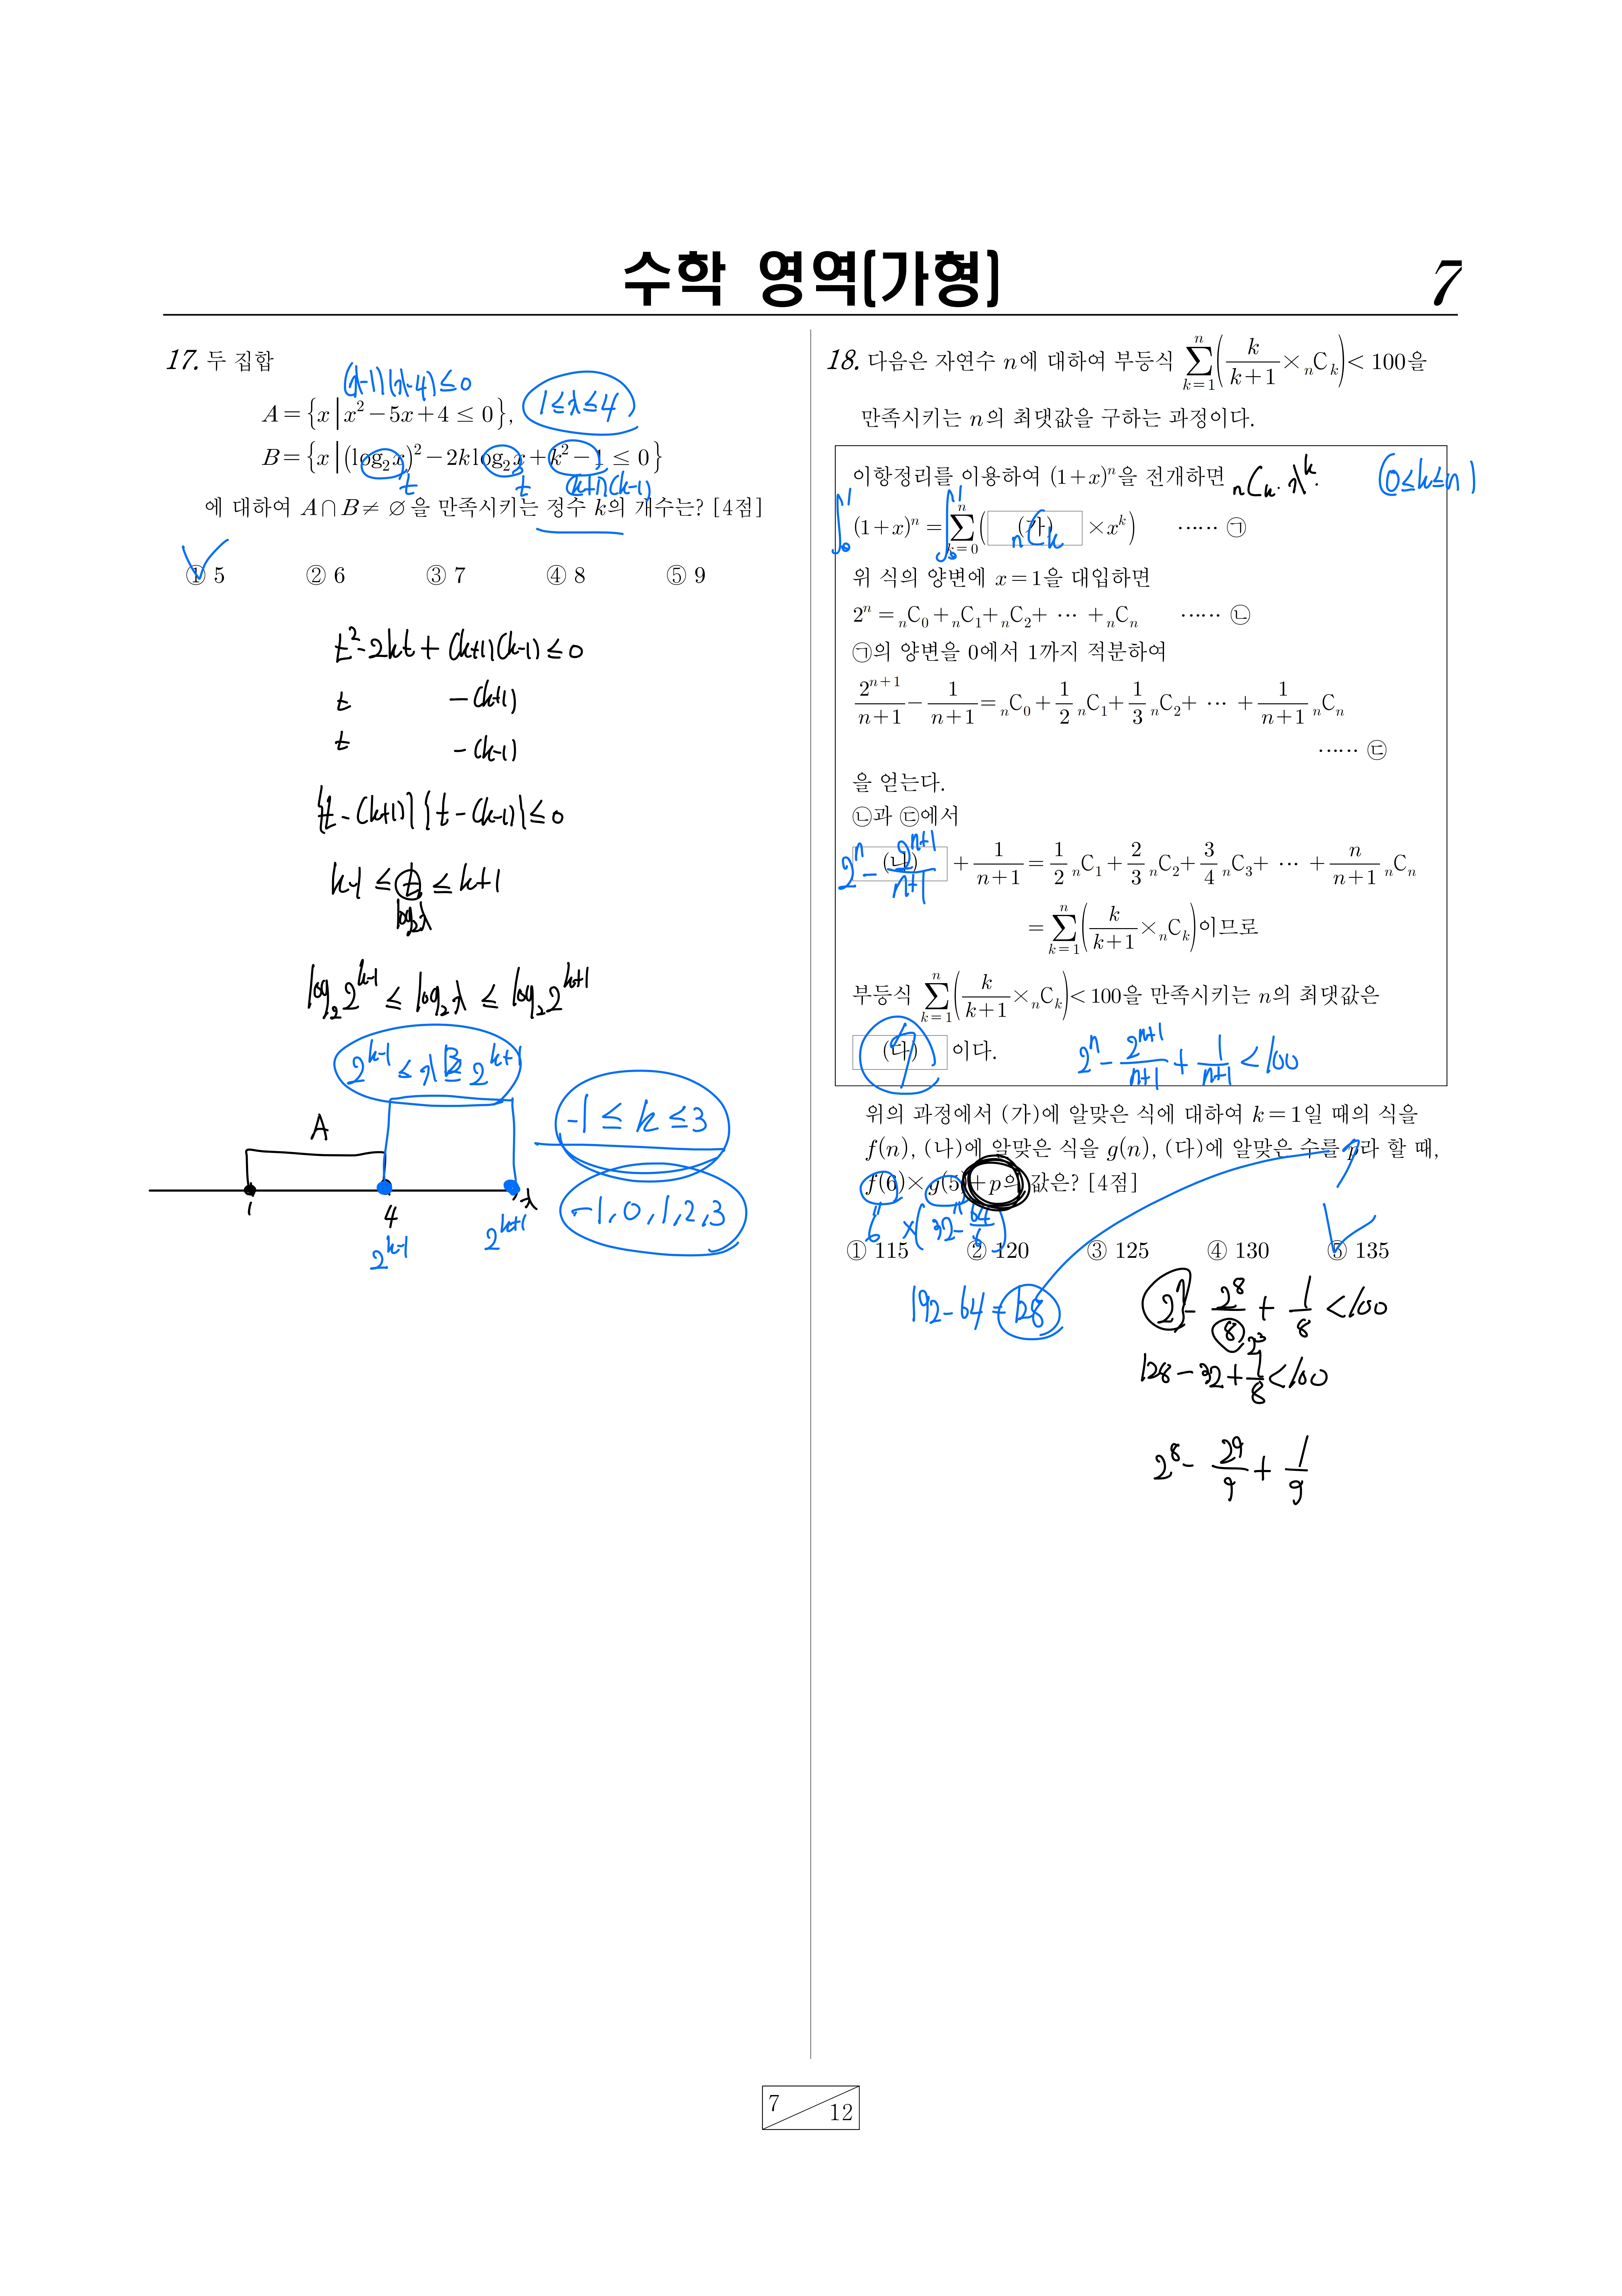 수학 영역(가형)
7
17. 두 집합
(x-1)(x-4)≤0
A={x|x²-5x+4≤0},
1≤x≤4
B={x|(log₂x)²-2klog₂x+k²-1≤0}
t
t
(k+1)(k-1)
에 대하여 A∩B≠∅을 만족시키는 정수 k의 개수는? [4점]
① 5 ② 6 ③ 7 ④ 8 ⑤ 9
t²-2kt+(k+1)(k-1)≤0
t -(k+1)
t -(k-1)
{t-(k+1)}{t-(k-1)}≤0
k-1≤t≤k+1
log₂x
log₂2^(k-1)≤log₂x≤log₂2^(k+1)
2^(k-1)≤x≤2^(k+1)
B
A
-1≤k≤3
-1, 0, 1, 2, 3
1 4 x
2^(k-1) 2^(k+1)
18. 다음은 자연수 n에 대하여 부등식 ∑_{k=1}^{n}(k/(k+1)×ₙCₖ)<100을
만족시키는 n의 최댓값을 구하는 과정이다.
이항정리를 이용하여 (1+x)ⁿ을 전개하면
ₙCₖ·xᵏ
(0≤k≤n)
(1+x)ⁿ=∑_{k=0}^{n}( (가) ×xᵏ) …… ㉠
∫₀¹
∫₀¹
ₙCₖ
위 식의 양변에 x=1을 대입하면
2ⁿ=ₙC₀+ₙC₁+ₙC₂+ ⋯ +ₙCₙ …… ㉡
㉠의 양변을 0에서 1까지 적분하여
2^(n+1)/(n+1)-1/(n+1)=ₙC₀+1/2 ₙC₁+1/3 ₙC₂+ ⋯ +1/(n+1) ₙCₙ
…… ㉢
을 얻는다.
㉡과 ㉢에서
(나) +1/(n+1)=1/2 ₙC₁+2/3 ₙC₂+3/4 ₙC₃+ ⋯ +n/(n+1) ₙCₙ
2ⁿ-2^(n+1)/(n+1)
=∑_{k=1}^{n}(k/(k+1)×ₙCₖ)이므로
부등식 ∑_{k=1}^{n}(k/(k+1)×ₙCₖ)<100을 만족시키는 n의 최댓값은
(다) 이다.
7
2ⁿ-2^(n+1)/(n+1)+1/(n+1)<100
위의 과정에서 (가)에 알맞은 식에 대하여 k=1일 때의 식을
f(n), (나)에 알맞은 식을 g(n), (다)에 알맞은 수를 p라 할 때,
7
f(6)×g(5)+p의 값은? [4점]
6 ×(32-64/6)
① 115 ② 120 ③ 125 ④ 130 ⑤ 135
192-64=128
2⁷-2⁸/8+1/8<100
2³
128-32+1/8<100
2⁸-2⁹/9+1/9
7
12